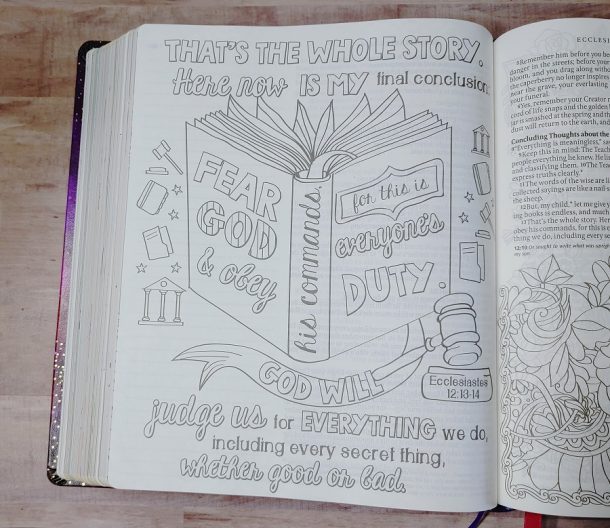 THAT'S THE WHOLE STORY.
Here now IS MY final conclusion:
FEAR
GOD
& obey
his commands,
for this is
everyone's
DUTY.
GOD WILL
Ecclesiastes
12:13-14
judge us for EVERYTHING we do,
including every secret thing,
whether good or bad.
ECCLESI
Remember him before you be
danger in the streets; before your
bloom, and you drag along without
the caperberry no longer inspires
near the grave, your everlasting
your funeral.
6Yes, remember your Creator n
cord of life snaps and the golden
jar is smashed at the spring and the
dust will return to the earth, and
Concluding Thoughts about the
8"Everything is meaningless," sa
9Keep this in mind: The Teac
people everything he knew. He lis
and classifying them. 10The Teach
express truths clearly.
11The words of the wise are lik
collected sayings are like a nail-s
the sheep.
12But, my child, let me give you
ing books is endless, and much
13That's the whole story. Here
obey his commands, for this is
thing we do, including every secre
12:10 Or sought to write what was uprigh
my son.